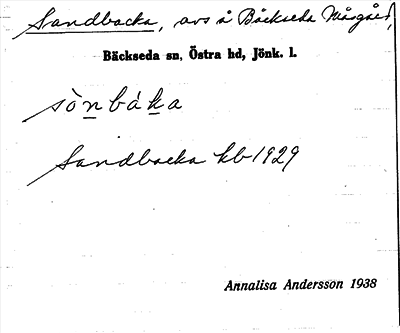 Sandbacka, avs å Bäckseda Norrgård,
Bäckseda sn, Östra hd, Jönk. l.
sònbáka
Sandbacka kb 1929
Annalisa Andersson 1938